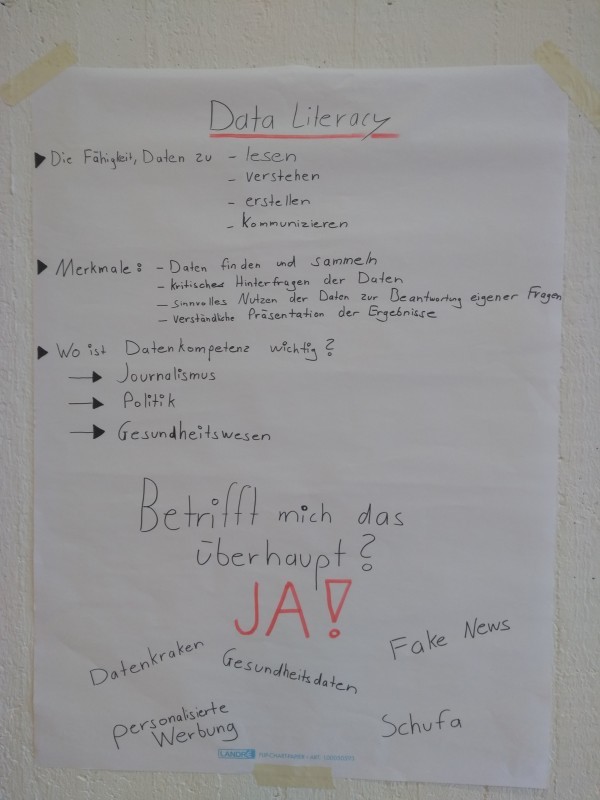 Data Literacy
▶ Die Fähigkeit, Daten zu - lesen
- verstehen
- erstellen
- kommunizieren
▶ Merkmale: - Daten finden und sammeln
- kritisches Hinterfragen der Daten
- sinnvolles Nutzen der Daten zur Beantwortung eigener Fragen
- verständliche Präsentation der Ergebnisse
▶ Wo ist Datenkompetenz wichtig?
→ Journalismus
→ Politik
→ Gesundheitswesen
Betrifft mich das
überhaupt?
JA!
Datenkraken Gesundheitsdaten Fake News
personalisierte
Werbung
Schufa
LANDRÉ